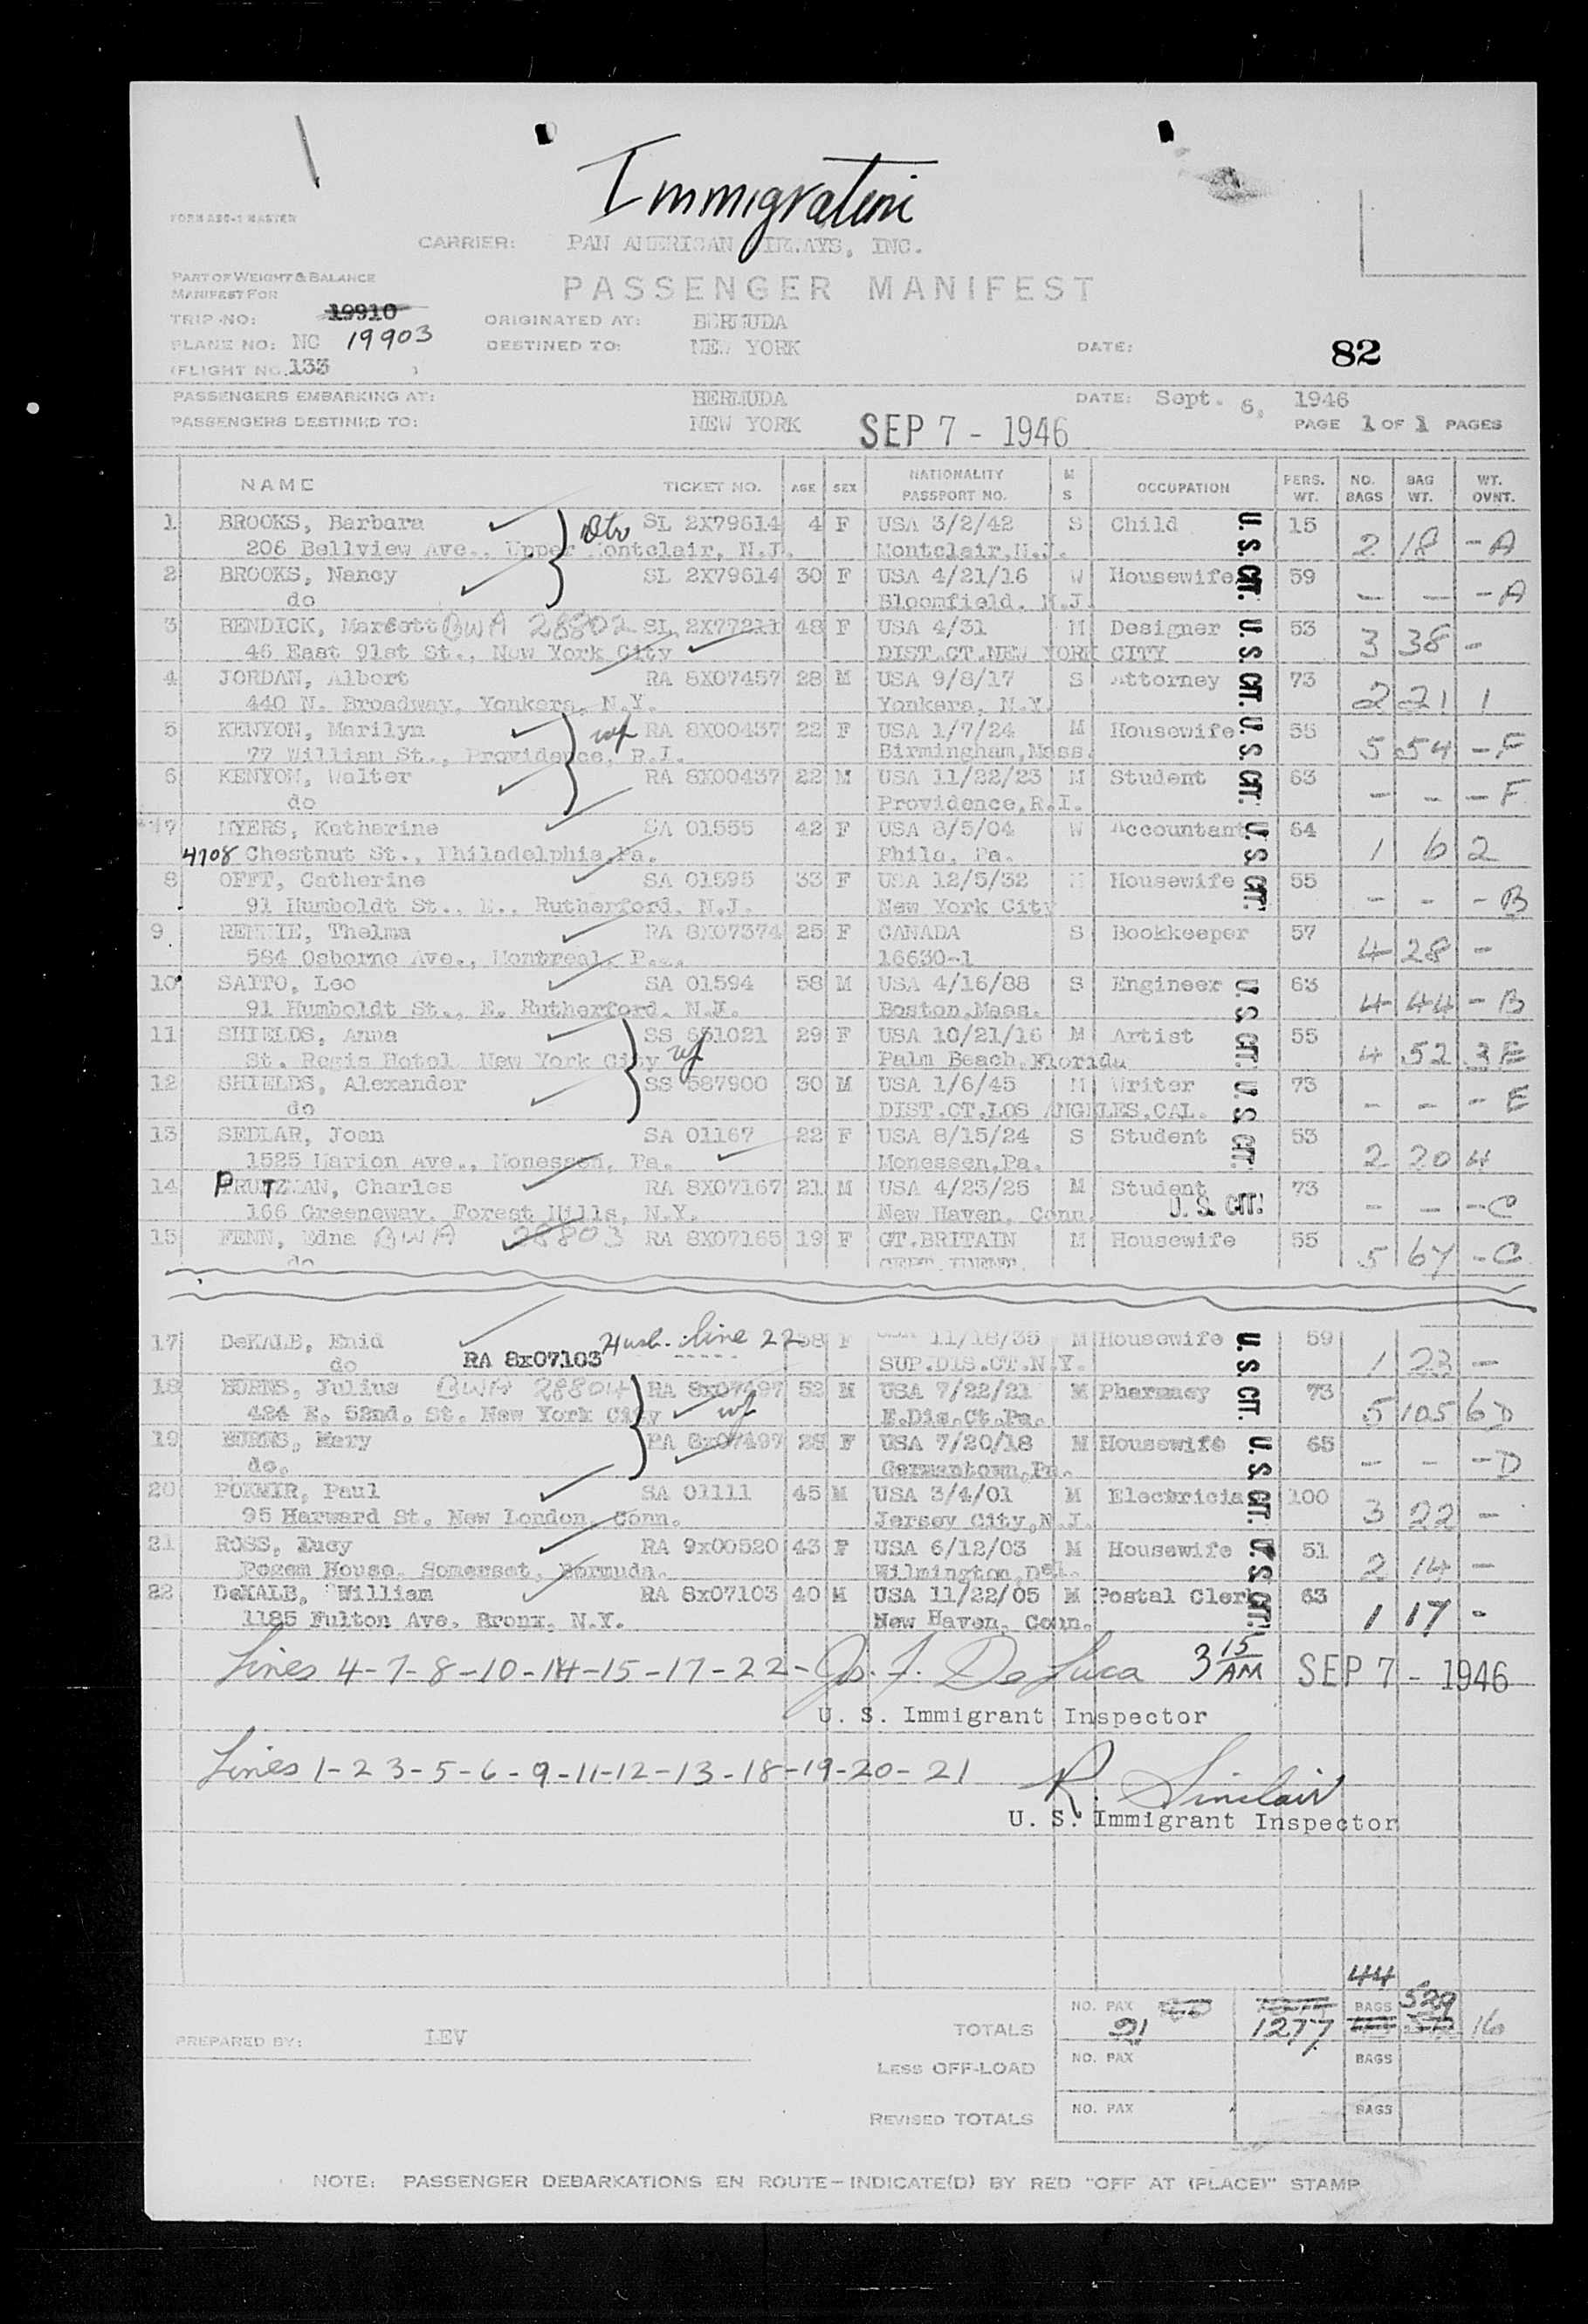 Immigration
FORM ASC-1 MASTER
CARRIER: PAN AMERICAN AIRWAYS, INC.
PART OF WEIGHT & BALANCE
MANIFEST FOR
PASSENGER MANIFEST
TRIP NO: 19910
ORIGINATED AT: BERMUDA
PLANE NO: NC 19903
DESTINED TO: NEW YORK
DATE: 82
(FLIGHT NO. 133 )
PASSENGERS EMBARKING AT: BERMUDA
DATE: Sept. 6, 1946
PASSENGERS DESTINED TO: NEW YORK
SEP 7 - 1946
PAGE 1 OF 1 PAGES
NAME TICKET NO. AGE SEX NATIONALITY PASSPORT NO. M S OCCUPATION PERS. WT. NO. BAGS BAG WT. WT. OVNT.
1 BROOKS, Barbara SL 2X79614 4 F USA 3/2/42 S Child U.S. CIT. 15
206 Bellview Ave., Upper Montclair, N.J. Montclair, N.J. 2 18 - A
2 BROOKS, Nancy SL 2X79614 30 F USA 4/21/16 W Housewife 59
do Bloomfield, N.J. - - - A
3 BENDICK, Marcott BWA 28802 SL 2X77211 48 F USA 4/31 M Designer U.S. CIT. 53
46 East 91st St., New York City DIST.CT.NEW YORK CITY 3 38 -
4 JORDAN, Albert RA 8X07457 28 M USA 9/8/17 S Attorney 73
440 N. Broadway, Yonkers, N.Y. Yonkers, N.Y. 2 21 1
5 KENYON, Marilyn wf RA 8X00437 22 F USA 1/7/24 M Housewife U.S. CIT. 55
77 William St., Providence, R.I. Birmingham, Mass. 5 54 - F
6 KENYON, Walter RA 8X00437 22 M USA 11/22/23 M Student 63
do Providence, R.I. - - - F
7 MYERS, Katherine SA 01555 42 F USA 8/5/04 W Accountant U.S. CIT. 64
4708 Chestnut St., Philadelphia, Pa. Phila, Pa. 1 6 2
8 OFFT, Catherine SA 01595 33 F USA 12/5/32 M Housewife 55
91 Humboldt St., E., Rutherford, N.J. New York City - - - B
9 RENNIE, Thelma RA 8X07374 25 F CANADA S Bookkeeper 57
584 Osborne Ave., Montreal, 16630-1 4 28 -
10 SAITO, Leo SA 01594 58 M USA 4/16/88 S Engineer U.S. CIT. 63
91 Humboldt St., E. Rutherford, N.J. Boston, Mass. 4 44 - B
11 SHIELDS, Anna SS 651021 29 F USA 10/21/16 M Artist 55
St. Regis Hotel, New York City wf Palm Beach, Florida 4 52 3 E
12 SHIELDS, Alexander SS 587900 30 M USA 1/6/45 M Writer U.S. CIT. 73
do DIST.CT.LOS ANGELES,CAL. - - - E
13 SEDLAR, Joan SA 01167 22 F USA 8/15/24 S Student 53
1525 Marion Ave., Monessen, Pa. Monessen, Pa. 2 20 4
14 PRUTZMAN, Charles RA 8X07167 21 M USA 4/23/25 M Student 73
166 Greenway, Forest Hills, N.Y. New Haven, Conn. U.S. CIT. - - - C
15 FENN, Edna BWA 28803 RA 8X07165 19 F GT.BRITAIN M Housewife 55
do 5 67 - C
17 DeKALB, Enid Husb. line 22 38 F 11/18/35 M Housewife U.S. CIT. 59
do RA 8x07103 SUP.DIS.CT.N.Y. 1 23 -
18 BURNS, Julius BWA 28804 RA 8x07497 52 M USA 7/22/21 M Pharmacy 73
424 E. 52nd. St. New York City wf E.Dis.Ct.Pa. 5 105 6 D
19 BURNS, Mary RA 8x07497 28 F USA 7/20/18 M Housewife U.S. CIT. 65
do. Germantown, Pa. - - - D
20 POKMIR, Paul SA 01111 45 M USA 3/4/01 M Electricia 100
95 Harward St. New London, Conn. Jersey City, N.J. 3 22 -
21 ROSS, Lucy RA 9x00520 43 F USA 6/12/03 M Housewife U.S. CIT. 51
House, Somerset, Bermuda. Wilmington, Del. 2 14 -
22 DeKALB, William RA 8x07103 40 M USA 11/22/05 M Postal Clerk 63
1185 Fulton Ave. Bronx, N.Y. New Haven, Conn. 1 17 -
Lines 4-7-8-10-14-15-17-22- Jos. F. DeLuca 3 15 AM SEP 7 - 1946
U. S. Immigrant Inspector
Lines 1-2 3-5-6-9-11-12-13-18-19-20-21 R. Sinclair
U. S. Immigrant Inspector
44
PREPARED BY: LEV
TOTALS NO. PAX 21 1277 BAGS 529 16
LESS OFF-LOAD NO. PAX BAGS
REVISED TOTALS NO. PAX BAGS
NOTE: PASSENGER DEBARKATIONS EN ROUTE-INDICATE(D) BY RED "OFF AT (PLACE)" STAMP